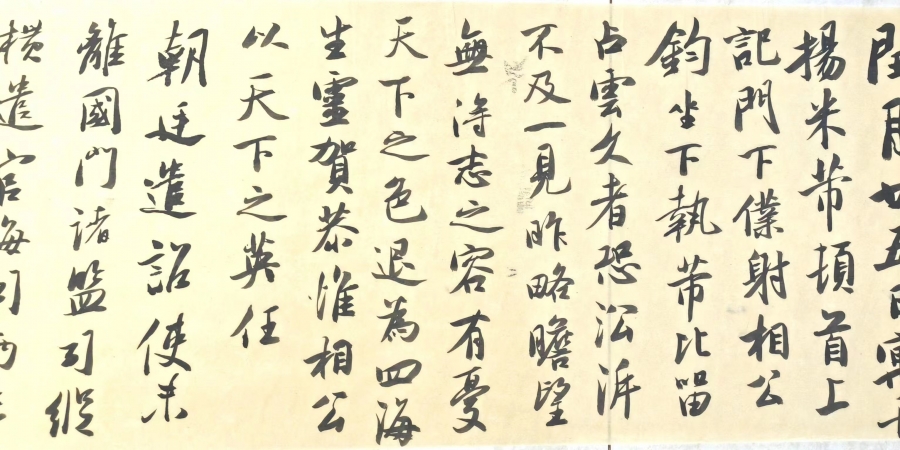 閏月廿五日寓
揚米芾頓首上
記門下僕射相公
鈞坐下執芾比留
占雲久者恐沿泝
不及一見昨略瞻望
無得志之容有憂
天下之色退為四海
生靈賀恭惟相公
以天下之英任
朝廷遣詔使未
離國門諸監司縱
橫遣官海